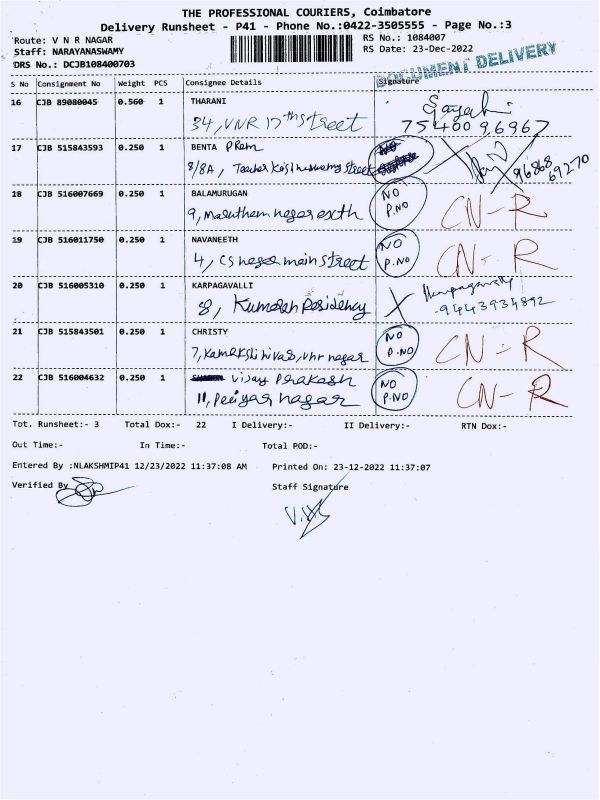 THE PROFESSIONAL COURIERS, Coimbatore
Delivery Runsheet - P41 - Phone No.:0422-3505555 - Page No.:3
Route: V N R NAGAR RS No.: 1084007
Staff: NARAYANASWAMY RS Date: 23-Dec-2022
DRS No.: DCJB108400703
DOCUMENT DELIVERY
S No Consignment No Weight PCS Consignee Details Signature
16 CJB 89080045 0.560 1 THARANI
34, VNR 17th Street 75400 96967
17 CJB 515843593 0.250 1 BENTA Prem NO
8/8A, Teacher Street 96868
69270
18 CJB 516007669 0.250 1 BALAMURUGAN NO
9, nagar P.NO CN-R
19 CJB 516011750 0.250 1 NAVANEETH NO
4, CS nagar main street P.NO CN-R
20 CJB 516005310 0.250 1 KARPAGAVALLI Karpagavally
8, Residency 9443934892
21 CJB 515843501 0.250 1 CHRISTY NO
7, vnr nagar P.NO CN-R
22 CJB 516004632 0.250 1 Vijay Prakash NO
11, Periyar nagar P.NO CN-R
Tot. Runsheet:- 3 Total Dox:- 22 I Delivery:- II Delivery:- RTN Dox:-
Out Time:- In Time:- Total POD:-
Entered By :NLAKSHMIP41 12/23/2022 11:37:08 AM Printed On: 23-12-2022 11:37:07
Verified By Staff Signature